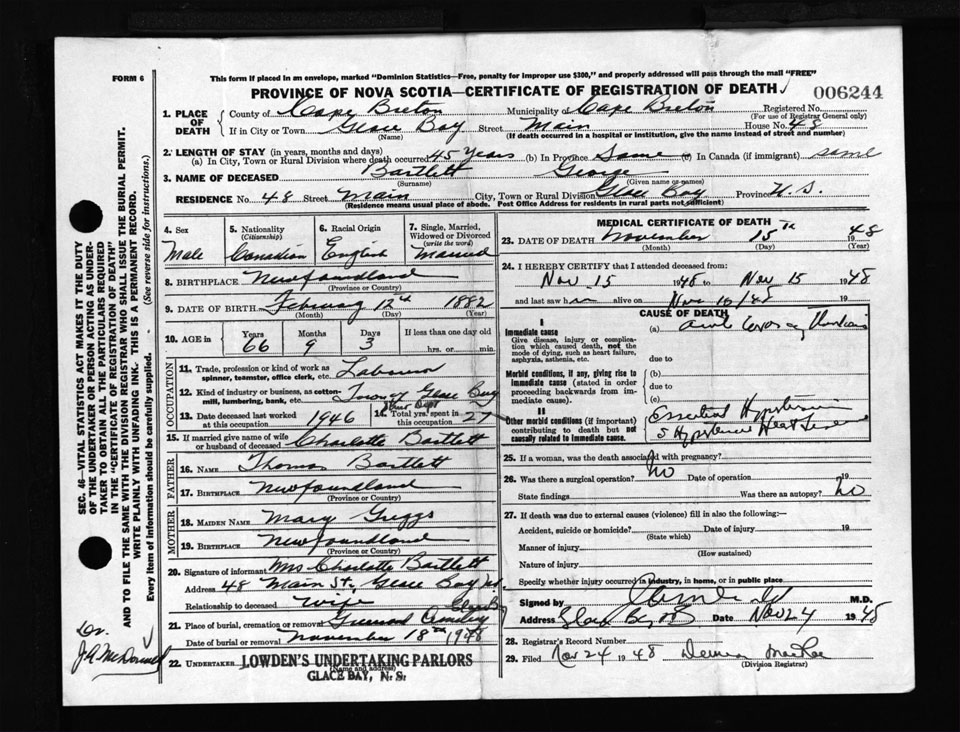 FORM 6
This form if placed in an envelope, marked "Dominion Statistics—Free, penalty for improper use $300," and properly addressed will pass through the mail "FREE"
PROVINCE OF NOVA SCOTIA—CERTIFICATE OF REGISTRATION OF DEATH
006244
1. PLACE OF DEATH
County of Cape Breton Municipality of Cape Breton Registered No.
(For use of Registrar General only)
If in City or Town Glace Bay Street Main House No. 48
(Name) (If death occurred in a hospital or institution, give the name instead of street and number)
2. LENGTH OF STAY (in years, months and days)
(a) In City, Town or Rural Division where death occurred 45 Years (b) In Province Same (c) In Canada (if immigrant) same
3. NAME OF DECEASED Bartlett George
(Surname) (Given name or names)
RESIDENCE No. 48 Street Main City, Town or Rural Division Glace Bay Province N. S.
(Residence means usual place of abode. Post Office Address for residents in rural parts not sufficient)
4. Sex Male
5. Nationality (Citizenship) Canadian
6. Racial Origin English
7. Single, Married, Widowed or Divorced (write the word) Married
8. BIRTHPLACE Newfoundland
(Province or Country)
9. DATE OF BIRTH February 12th 1882
(Month) (Day) (Year)
10. AGE in Years Months Days If less than one day old
66 9 3 hrs. or min.
OCCUPATION
11. Trade, profession or kind of work as spinner, teamster, office clerk, etc. Labourer
12. Kind of industry or business, as cotton mill, lumbering, bank, etc. Town of Glace Bay
13. Date deceased last worked at this occupation 1946
14. Total yrs. spent in this occupation 27
15. If married give name of wife or husband of deceased Charlotte Bartlett
FATHER
16. NAME Thomas Bartlett
17. BIRTHPLACE Newfoundland
(Province or Country)
MOTHER
18. MAIDEN NAME Mary Griggs
19. BIRTHPLACE Newfoundland
(Province or Country)
20. Signature of informant Mrs Charlotte Bartlett
Address 48 Main St, Glace Bay N.S.
Relationship to deceased Wife
21. Place of burial, cremation or removal Glace Bay
Date of burial or removal November 18th 1948
22. UNDERTAKER LOWDEN'S UNDERTAKING PARLORS
(Name and address)
GLACE BAY, N. S.
MEDICAL CERTIFICATE OF DEATH
23. DATE OF DEATH November 15th 1948
(Month) (Day) (Year)
24. I HEREBY CERTIFY that I attended deceased from:
Nov 15 1948 to Nov 15 1948
and last saw h alive on 19
CAUSE OF DEATH
I
Immediate cause
Give disease, injury or complication which caused death, not the mode of dying, such as heart failure, asphyxia, asthenia, etc.
(a)
due to
Morbid conditions, if any, giving rise to immediate cause (stated in order proceeding backwards from immediate cause).
(b)
due to
(c)
II
Other morbid conditions (if important) contributing to death but not causally related to immediate cause.
Essential Hypertension
25. If a woman, was the death associated with pregnancy?
26. Was there a surgical operation? No Date of operation 19
State findings Was there an autopsy? No
27. If death was due to external causes (violence) fill in also the following:—
Accident, suicide or homicide? Date of injury 19
(State which)
Manner of injury
(How sustained)
Nature of injury
Specify whether injury occurred in industry, in home, or in public place
Signed by M.D.
Address Glace Bay Date Nov 24 1948
28. Registrar's Record Number
29. Filed Nov 24 1948
(Division Registrar)
SEC. 46—VITAL STATISTICS ACT MAKES IT THE DUTY
OF THE UNDERTAKER OR PERSON ACTING AS UNDER-
TAKER TO OBTAIN ALL THE PARTICULARS REQUIRED
IN THE "CERTIFICATE OF REGISTRATION OF DEATH"
AND TO FILE THE SAME WITH THE DIVISION REGISTRAR WHO SHALL ISSUE THE BURIAL PERMIT.
WRITE PLAINLY WITH UNFADING INK. THIS IS A PERMANENT RECORD.
Every item of information should be carefully supplied. - (See reverse side for instructions.)
Dr.